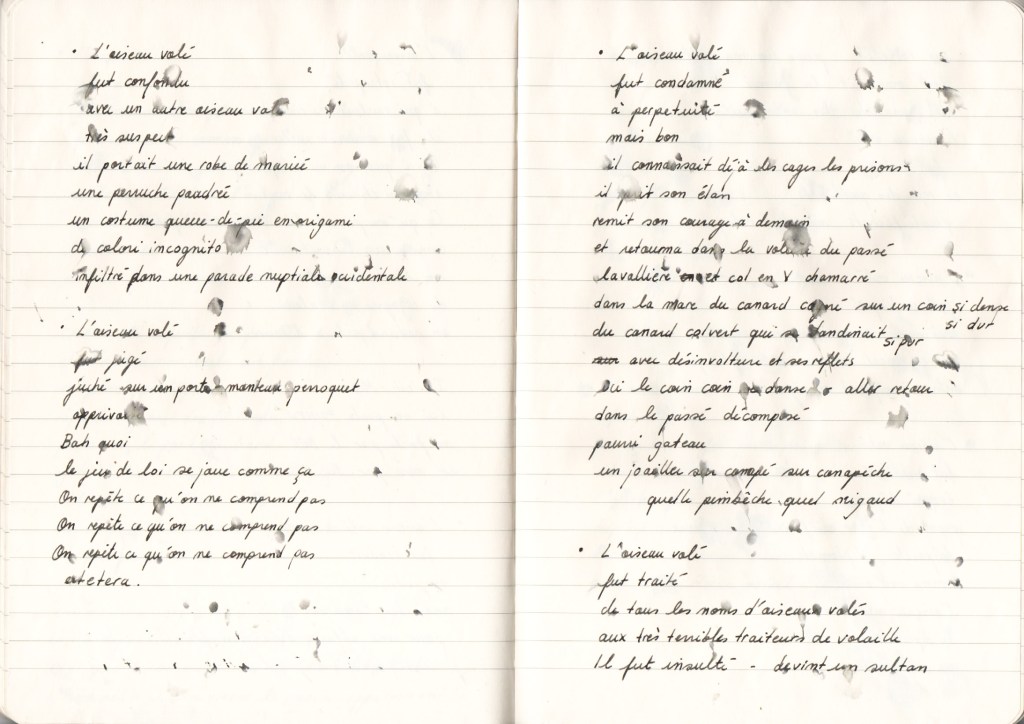 • L'oiseau volé
fut confondu
avec un autre oiseau volé
très suspect
il portait une robe de mariée
une perruche poudrée
un costume queue-de-pie en origami
de colori incognito
infiltré dans une parade nuptiale occidentale
• L'oiseau volé
fut jugé
juché sur un porte-manteau perroquet
apprivoisé
Bah quoi
le jeu de loi se joue comme ça
On repète ce qu'on ne comprend pas
On repète ce qu'on ne comprend pas
On repète ce qu'on ne comprend pas
etcetera.
• L'oiseau volé
fut condamné
à perpetuité
mais bon
il connaissait déjà les cages les prisons
il prit son élan
remit son courage à demain
et retourna dans la volière du passé
lavallière et col en V chamarré
dans la mare du canard carné sur un coin si dense
si dur
du canard colvert qui se dandinait si pur
avec désinvolture et ses reflets
Ici le coin coin danse aller retour
dans le passé décomposé
pourri gateau
un joailler sur canapé sur canapêche
quelle pimbêche quel nigaud
• L'oiseau volé
fut traité
de tous les noms d'oiseaux volés
aux très terribles traiteurs de volaille
Il fut insulté - devint un sultan